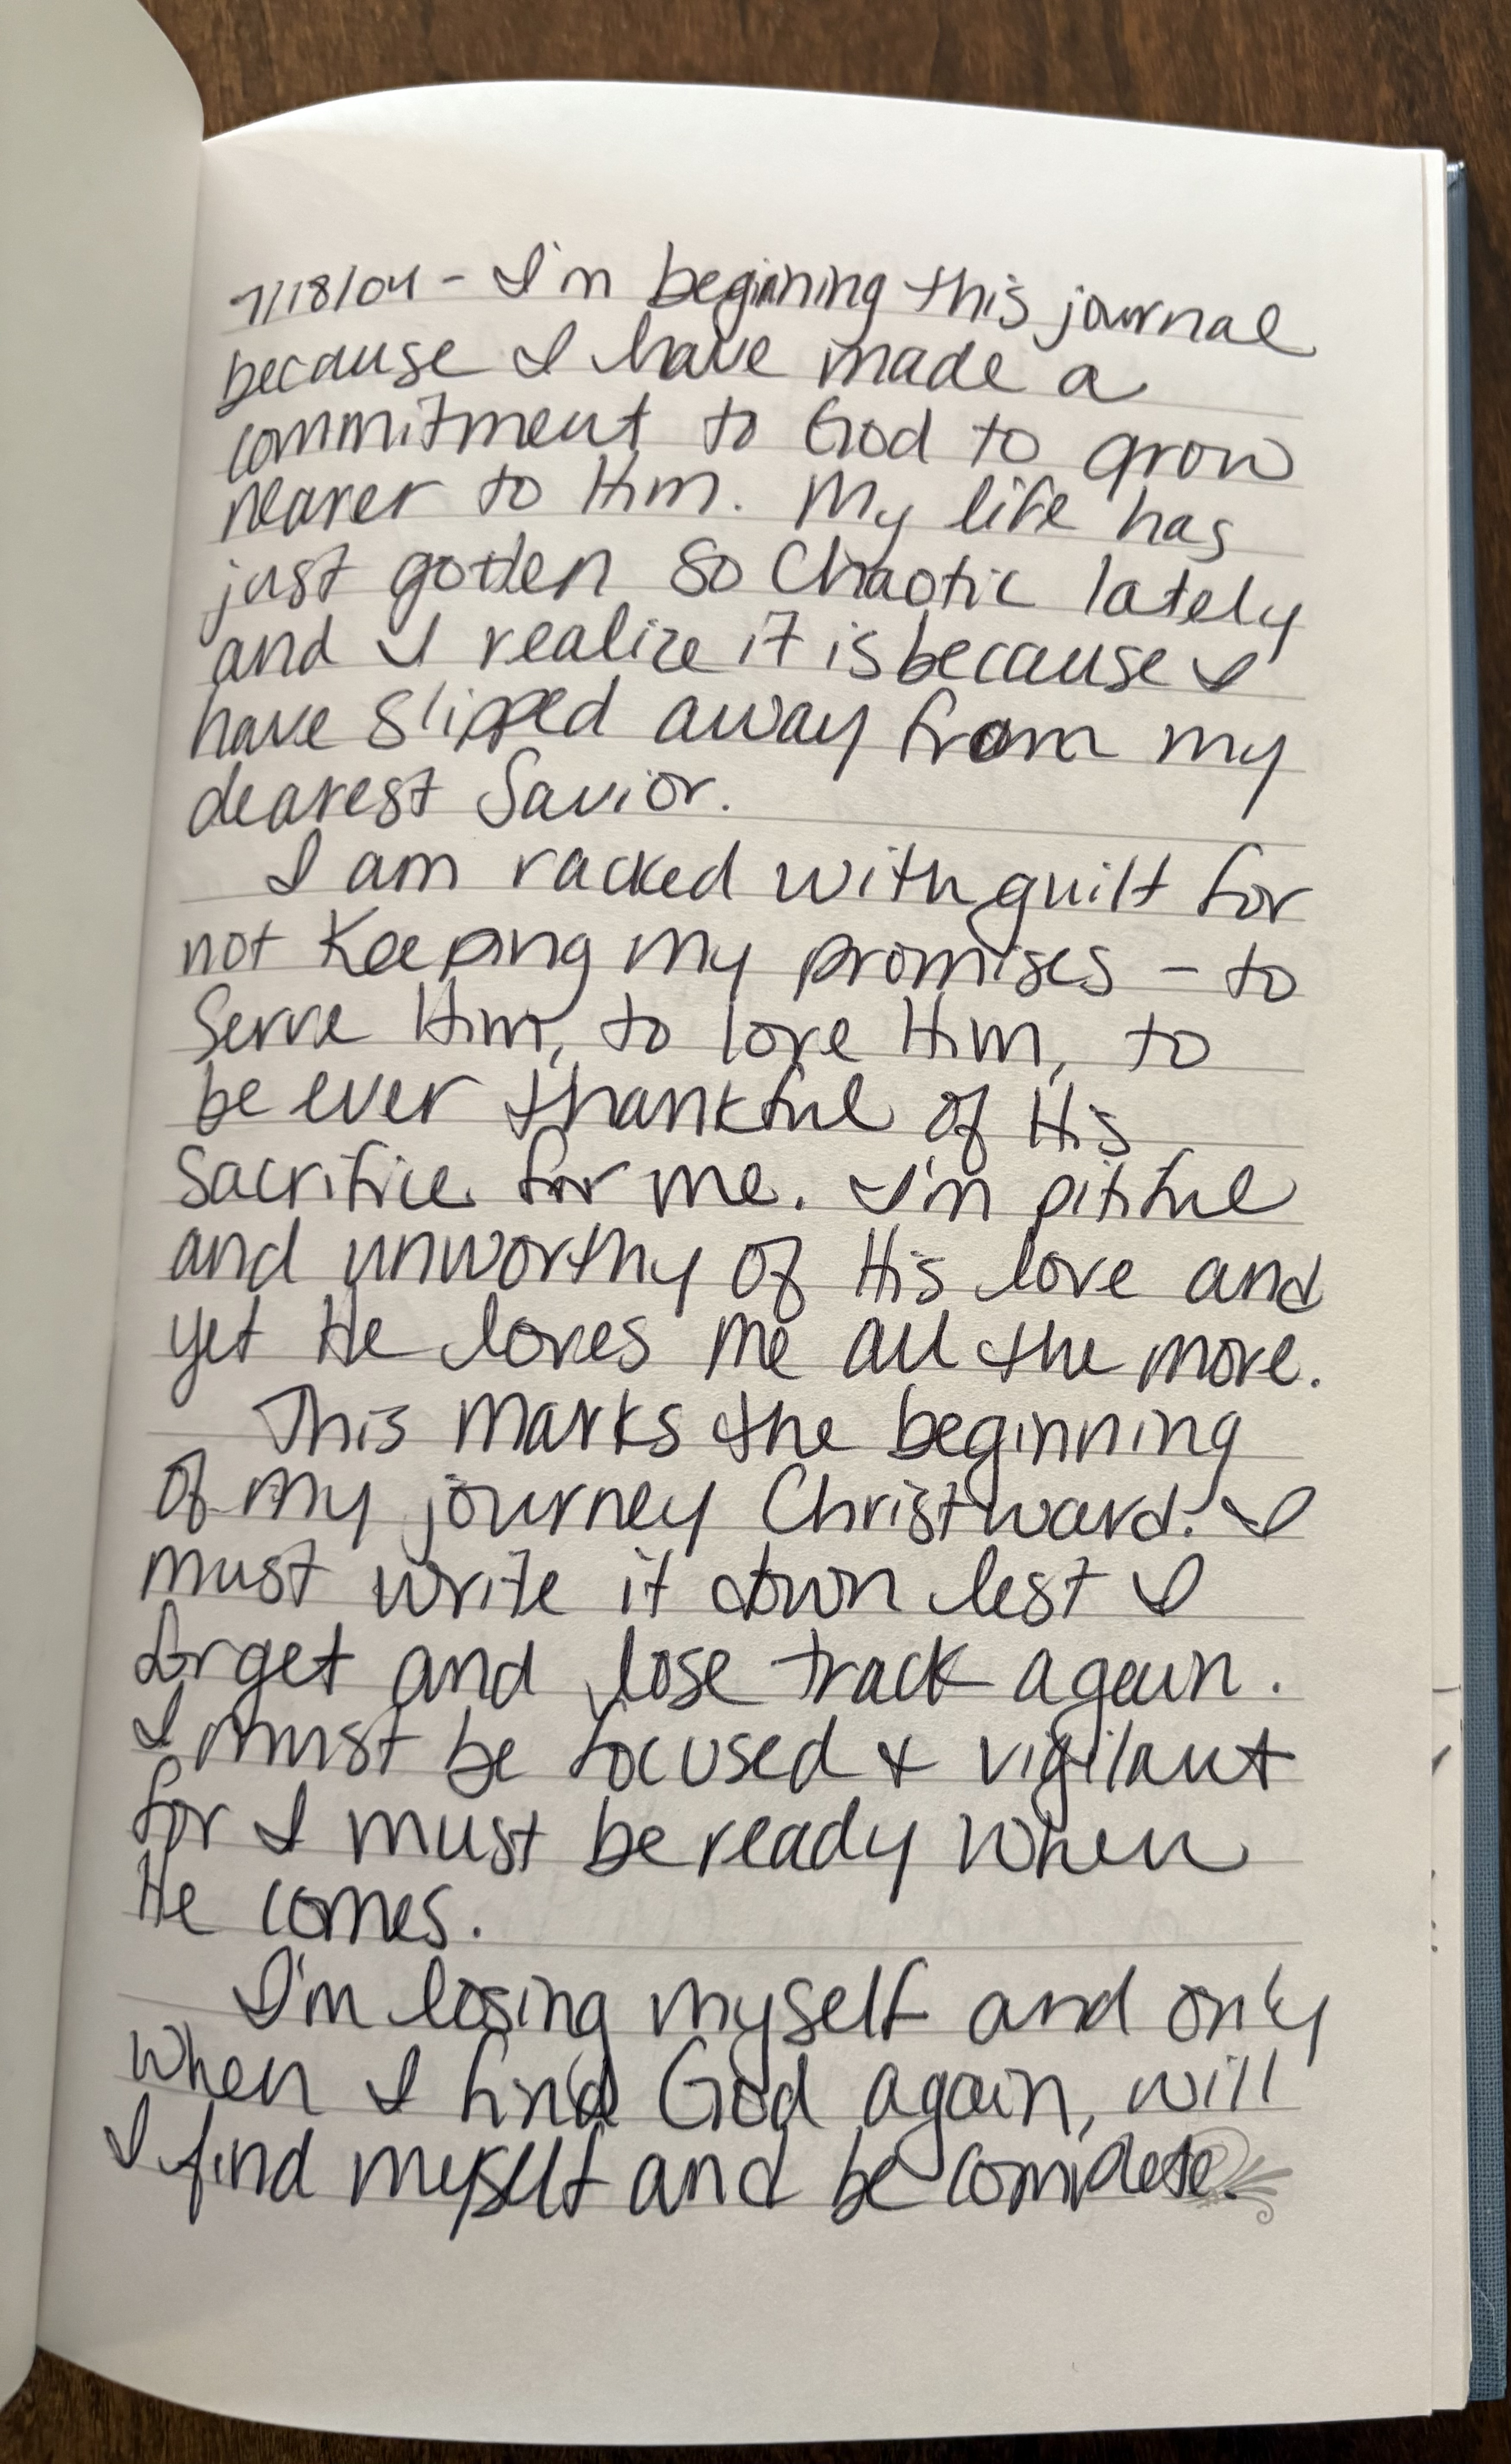 7/18/04 - I'm begining this journal
because I have made a
commitment to God to grow
nearer to Him. My life has
just gotten so chaotic lately
and I realize it is because I
have slipped away from my
dearest Savior.
I am racked with guilt for
not keeping my promises - to
serve Him, to love Him, to
be ever thankful of His
sacrifice for me. I'm pitiful
and unworthy of His love and
yet He loves me all the more.
This marks the beginning
of my journey Christward. I
must write it down lest I
forget and lose track again.
I must be focused & vigilant
for I must be ready when
He comes.
I'm losing myself and only
when I find God again, will
I find myself and be complete.